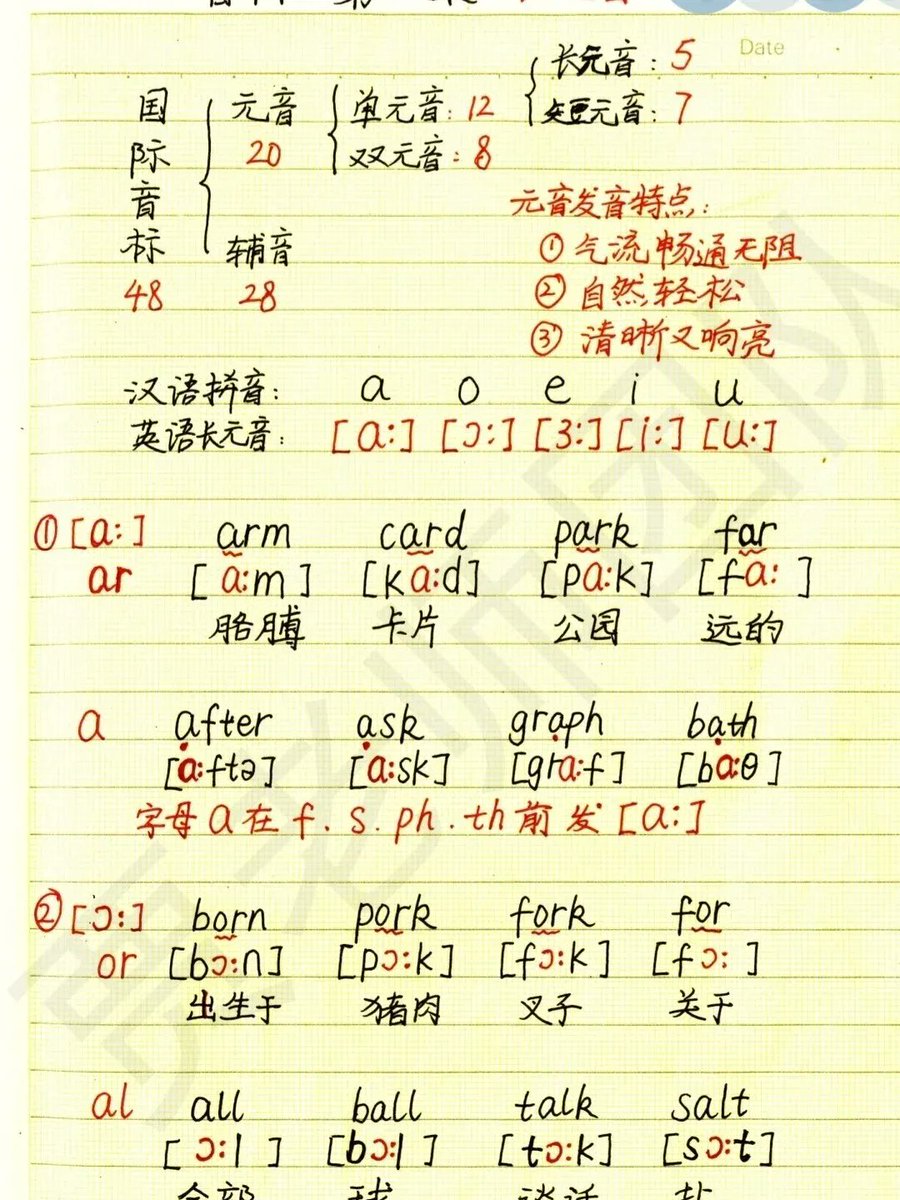 Date
长元音：5
国际音标 48
元音 20
单元音：12
短元音：7
双元音：8
辅音 28
元音发音特点：
① 气流畅通无阻
② 自然轻松
③ 清晰又响亮
汉语拼音： a o e i u
英语长元音： [ɑː] [ɔː] [ɜː] [iː] [uː]
① [ɑː] arm card park far
ar [ɑːm] [kɑːd] [pɑːk] [fɑː ]
胳膊 卡片 公园 远的
a after ask graph bath
[ɑːftə] [ɑːsk] [grɑːf] [bɑːθ]
字母a在f.s.ph.th前发[ɑː]
② [ɔː] born pork fork for
or [bɔːn] [pɔːk] [fɔːk] [fɔː ]
出生于 猪肉 叉子 关于
al all ball talk salt
[ɔːl] [bɔːl] [tɔːk] [sɔːt]